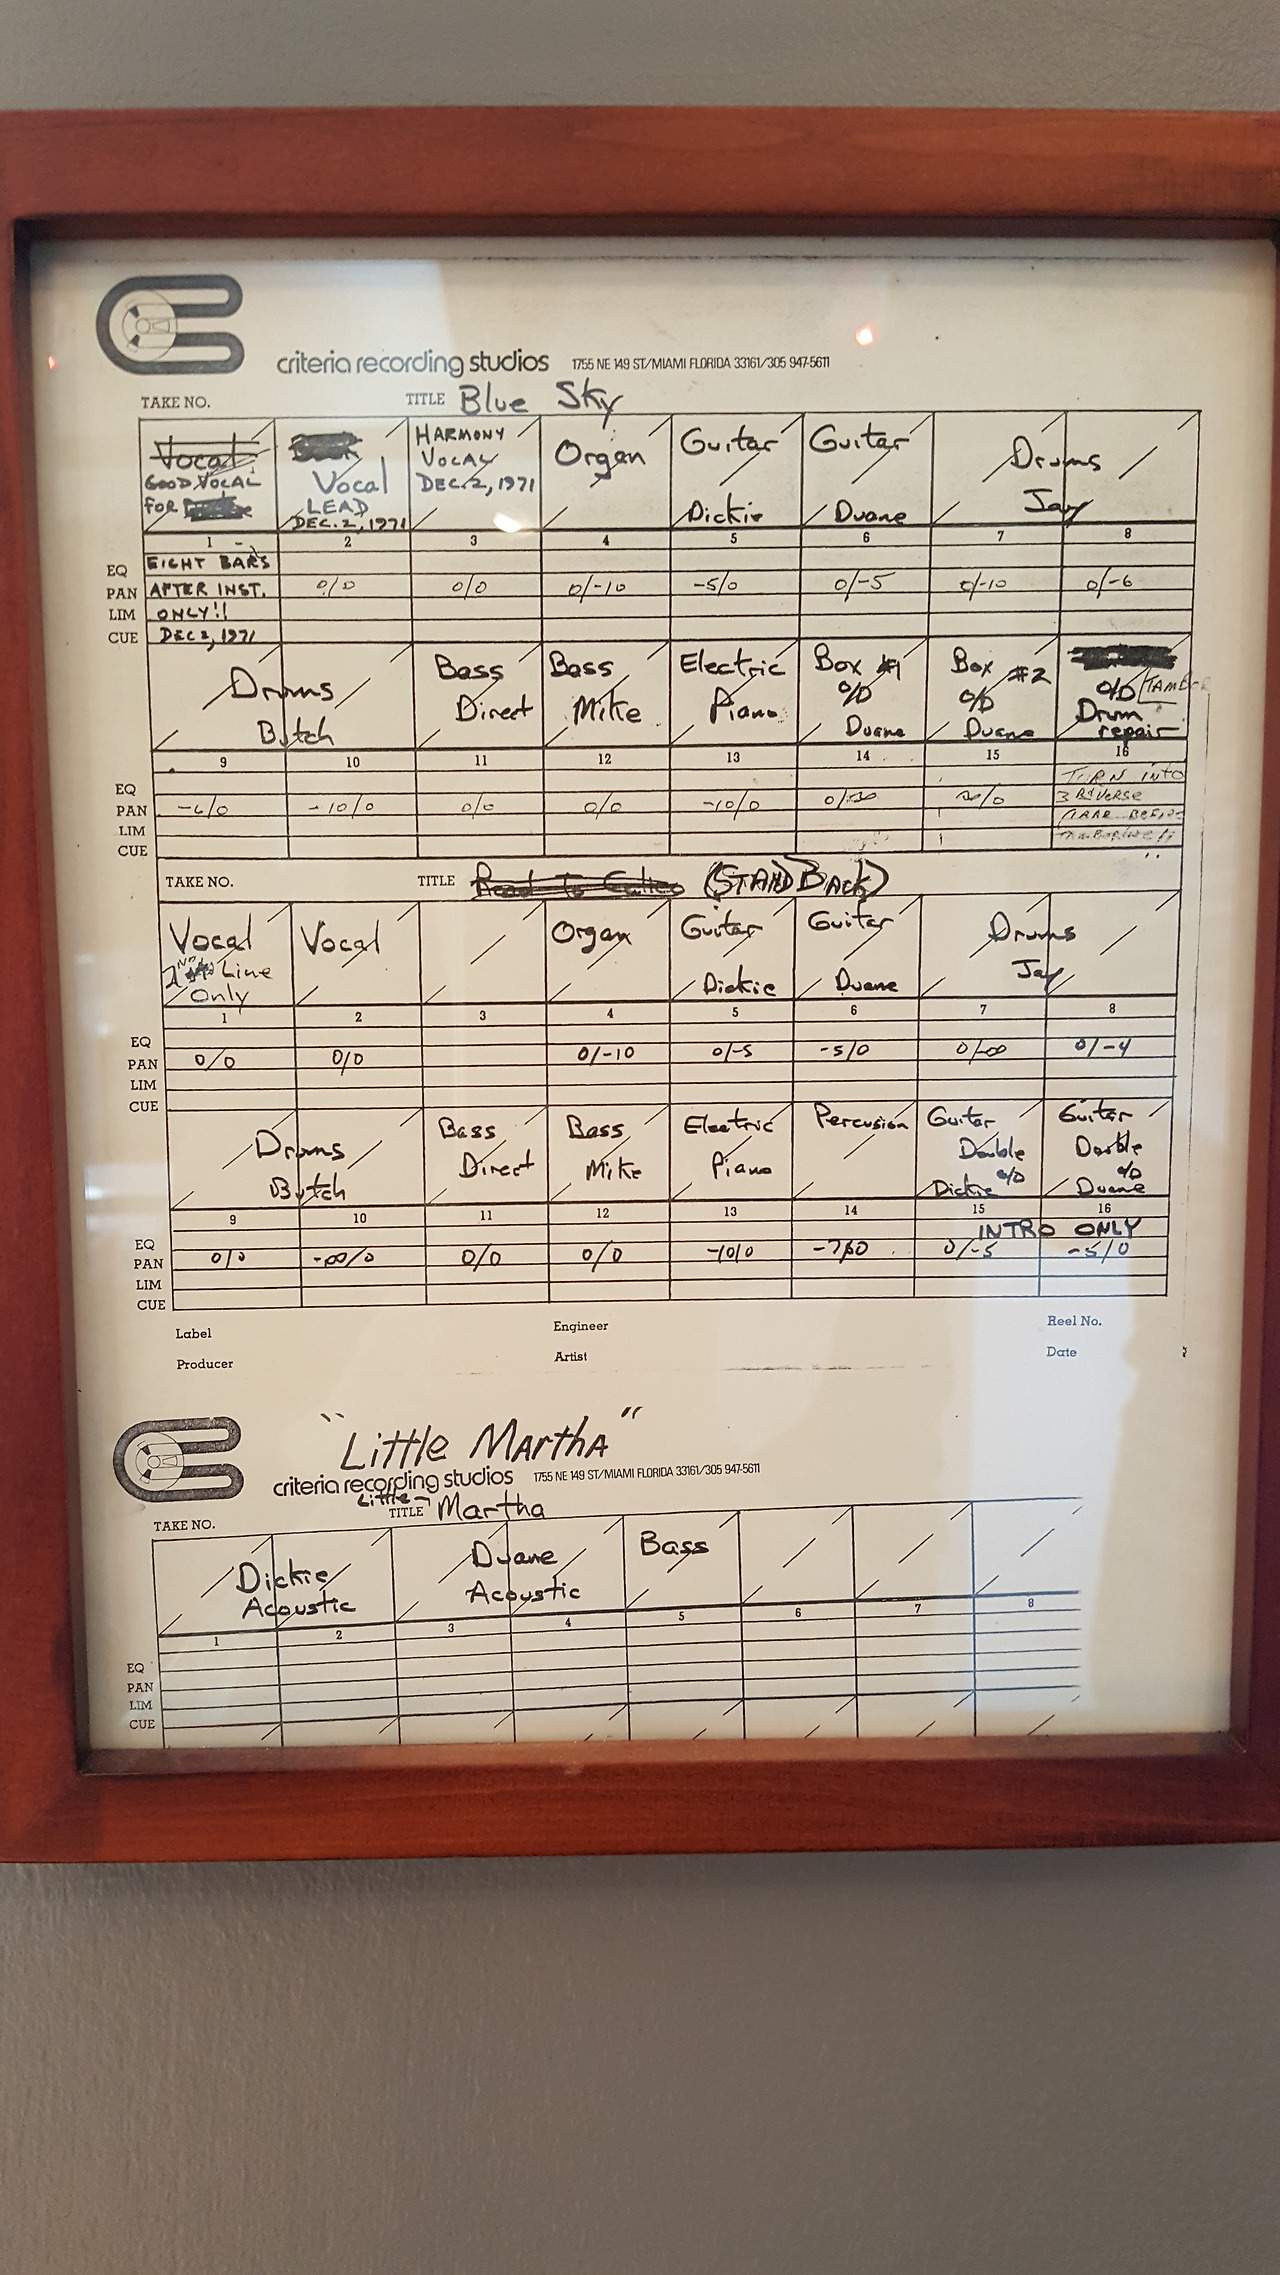 criteria recording studios 1755 NE 149 ST/MIAMI FLORIDA 33161/305 947-5611
TAKE NO. TITLE Blue Sky
Vocal GOOD VOCAL FOR
Vocal LEAD DEC. 2, 1971
HARMONY VOCAL DEC. 2, 1971
Organ
Guitar Dickie
Guitar Duane
Drums Jay
1 2 3 4 5 6 7 8
EQ EIGHT BARS
PAN AFTER INST. 0/0 0/0 0/-10 -5/0 0/-5 0/-10 0/-6
LIM ONLY!!
CUE DEC 2, 1971
Drums Butch
Bass Direct
Bass Mike
Electric Piano
Box #1 O/D Duane
Box #2 O/D Duane
O/D Drum repair
9 10 11 12 13 14 15 16
EQ TURN INTO
PAN -6/0 -10/0 0/0 0/0 -10/0
LIM
CUE
TAKE NO. TITLE (STAND BACK)
Vocal 2ND Line Only
Vocal
Organ
Guitar Dickie
Guitar Duane
Drums Jay
1 2 3 4 5 6 7 8
EQ
PAN 0/0 0/0 0/-10 0/-5 -5/0 0/-∞ 0/-4
LIM
CUE
Drums Butch
Bass Direct
Bass Mike
Electric Piano
Percusion
Guitar Double O/D Dickie
Guitar Double O/D Duane
9 10 11 12 13 14 15 16
EQ INTRO ONLY
PAN 0/0 -∞/0 0/0 0/0 -10/0 0/-5 -5/0
LIM
CUE
Label Engineer Reel No.
Producer Artist Date
"Little Martha"
criteria recording studios 1755 NE 149 ST/MIAMI FLORIDA 33161/305 947-5611
TAKE NO. TITLE Little Martha
Dickie Acoustic
Duane Acoustic
Bass
1 2 3 4 5 6 7 8
EQ
PAN
LIM
CUE